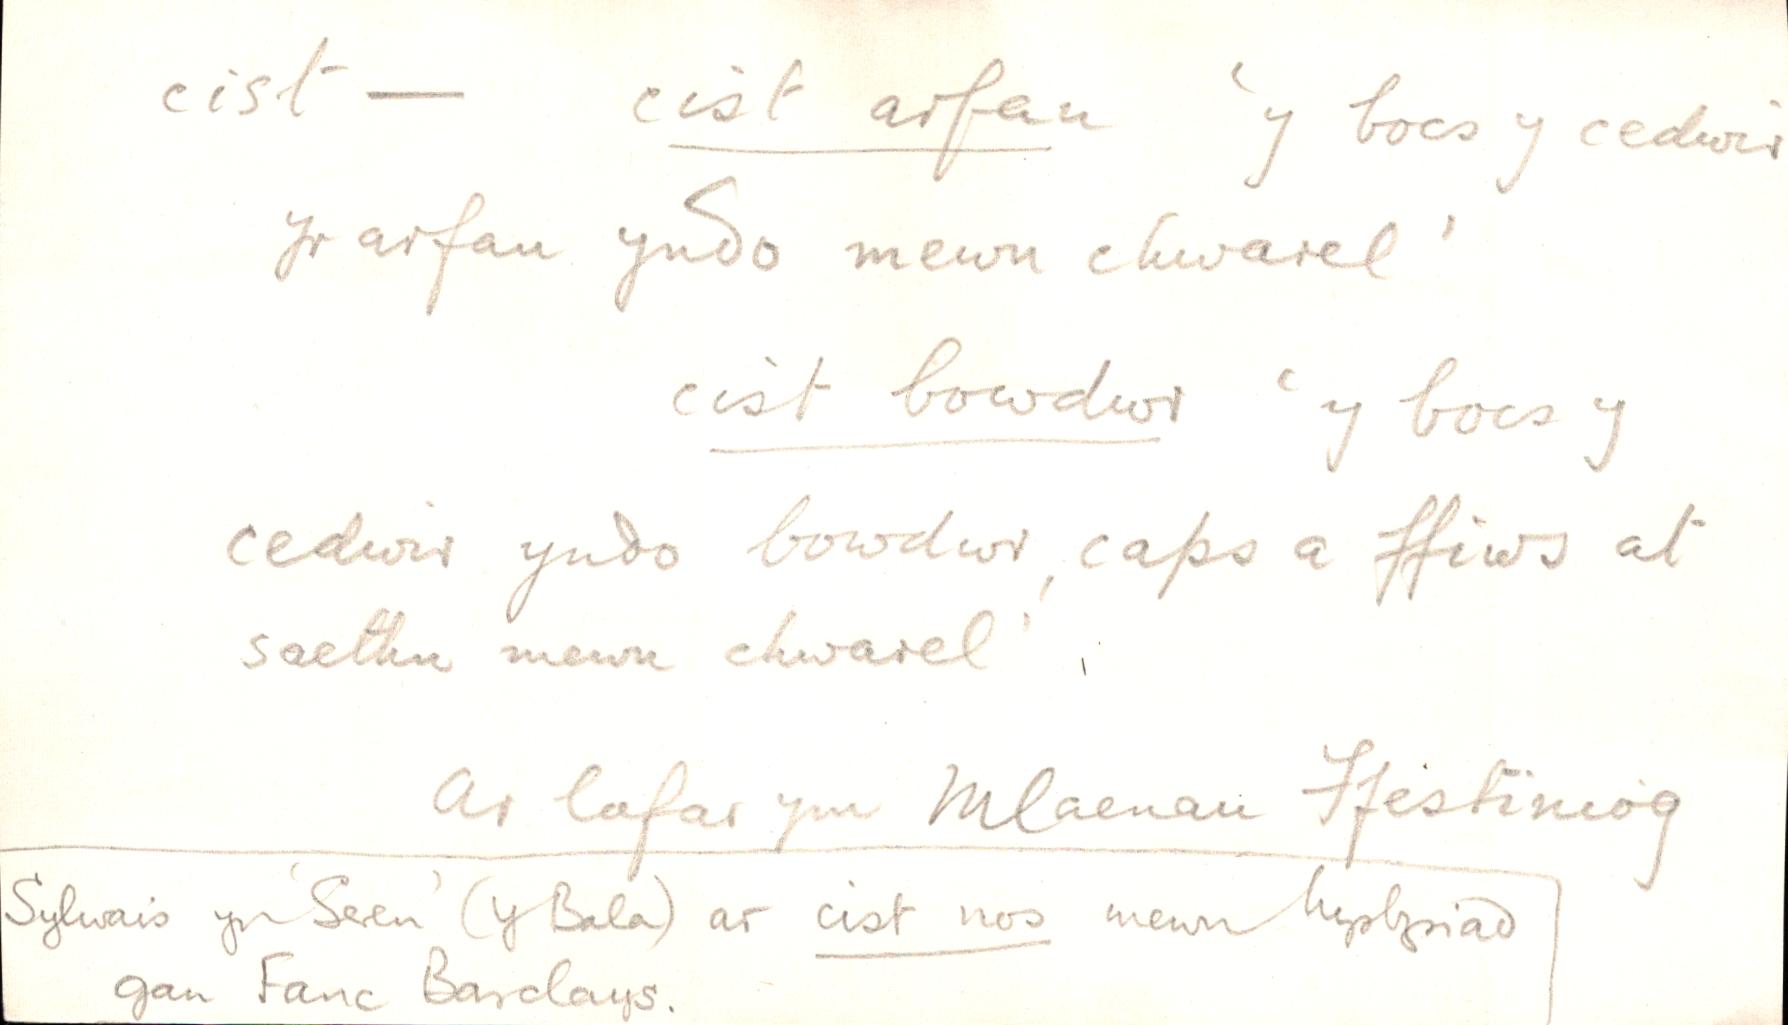 cist — cist arfau ‘y bocs y cedwir
yr arfau ynδo mewn chwarel’
cist bowdwr ‘y bocs y
cedwir ynδo bowdwr, caps a ffiws at
saethu mewn chwarel’.
Ar lafar ym Mlaenau Ffestiniog
Sylwais yn 'Seren' (y Bala) ar cist nos mewn hysbysiad
gan Fanc Barclays.